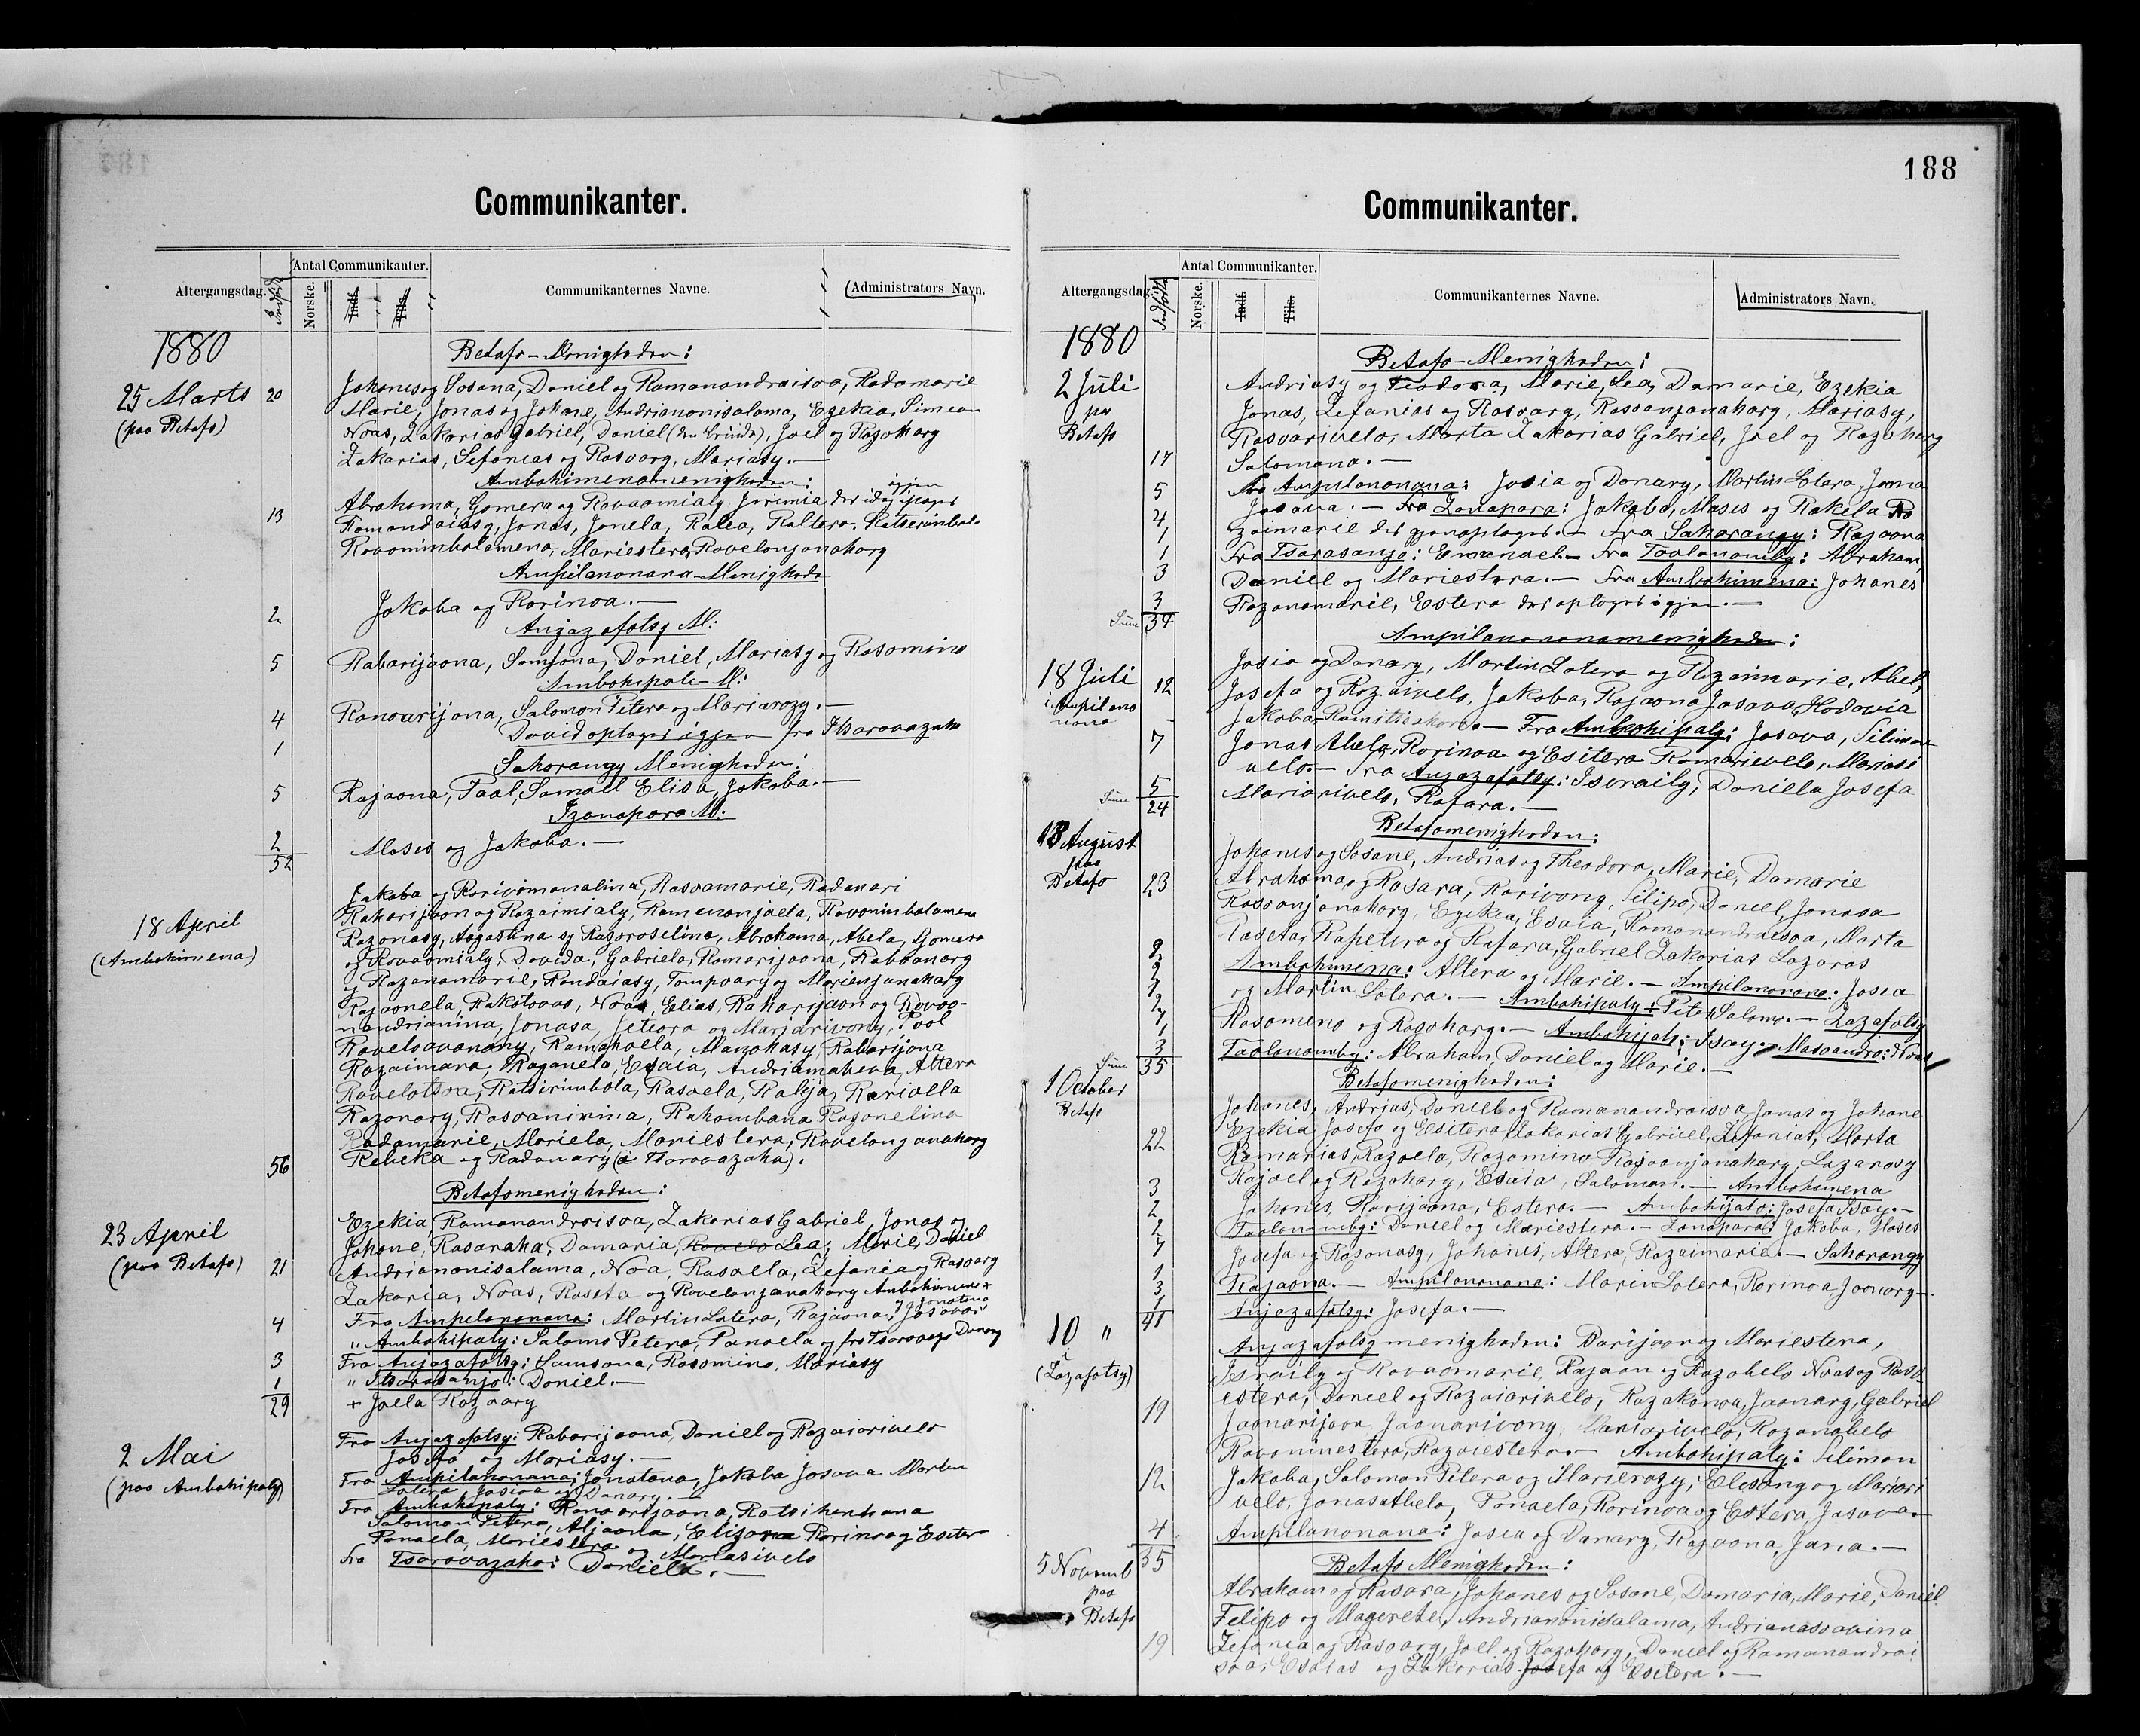 188
Communikanter.
Altergangsdag.
Antal Communikanter.
Norske.
Communikanternes Navne.
Administrators Navn.
1880
Betafo-Menigheden:
25 Marts
(paa Betafo)
20
Johanes og Sosana, Daniel og Ramanandraisoa, Radamarie
Marie, Jonas og Johane, Andrianonisalama, Ezekia, Simeon
Noas, Zakarias Gabriel, Daniel, Joel og Razohary
Zakarias, Sefanias og Rasoary, Mariasy.—
Ambohimenamenigheden:
13
Abrahama, Gomera og Ravaomialy Jerimia
Jonas, Jonela, Ralea, Raltera, Ratserimbola
Ravonimbolamena, Mariestera, Ravelonjanahary
Ampilanonana-Menighede
2
Jakoba og Rorinoa.—
Anjazafotsy M:
5
Rabarijaona, Samsona, Daniel, Mariasy og Rasomino
Ambohipale-M:
4
Ranoarijona, Salomon Petera og Mariarozy.—
1
David optaget igjen fra Tsarovazaha
Sahorangy Menigheden:
5
Rajaona, Paal, Samoel Elisa, Jakoba.—
Izanapara M:
2
Moses og Jakoba.—
52
18 April
(Ambohimena)
Jakoba og Rarivomanalina, Rasoamarie, Radanari
Raharijaon og Razaimialy, Ramenonjaela, Ravonimbolamena
Razonasy, Augastina og Razoroselina, Abrahama, Abela, Gomera
og Ravaomialy, Davida, Gabriela, Ramarijaona, Rabboanary
og Razanamarie, Randaiasy, Tompoary og Marienjanahary
Rajaonela, Rakotovao, Noas, Elias, Raharijaon og Ravao-
nandrianina, Jonasa, Jetiora og Marjarivony, Paol
Ravelovanany, Ramahaela, Manohasy, Rabarijona
Razaimara, Raganela, Esaia, Andriamaheva, Altera
Ravelotsoa, Ratsirimbola, Rasoela, Rakja, Rarivella
Razonary, Rasoanivina, Rahombana Razonelina
Radamarie, Mariela, Mariestera, Ravelonjanahary
56
Rebeka og Radanary (i Tsarovazaha).
Betafomenigheden:
23 April
(paa Betafo)
Ezekia, Ramanandraisoa, Zakarias Gabriel, Jonas og
Johane, Rasaraha, Damaria, Ravelo Lea, Marie, Daniel
21
Andrianonisalama, Noa, Rasoella, Zefania og Rasoary
Zakaria, Noas, Raseta og Ravelonjanahary Ambohimena +
4
Fra Ampilanonana: Martin Lotera, Rajaona, Josova og Jonatana
" Ambohipaly: Salomo Petera, Panaela og fra Tsarovaza Danary
3
Fra Anjazafotsy: Samsona, Rasomino, Mariasy
1
" Itsarasanjo: Daniel.—
29
+ Joela Razoary
2 Mai
(paa Ambohipaly)
Fra Anjazafotsy: Rabarijaona, Daniel og Razaiarivelo
Josefa og Mariasy.—
Fra Ampilanonana: Jonatana, Jakoba Josova Martin
Lotera, Josioa og Danary.—
Fra Ambohipaly: Ranoarijaona, Ratsihenhana
Salomon Petera, Aljaona, Elisara Rorinoa og Ester
Panaela, Mariestera og Mariasivelo
Fra Tsarovazaha: Daniela.—
Communikanter.
Altergangsdag.
Antal Communikanter.
Norske.
Communikanternes Navne.
Administrators Navn.
1880
Betafo-Menigheden:
2 Juli
paa
Betafo
Andriasy og Teodora, Marie, Lea, Damarie, Ezekia
Jonas, Zefanias og Rasoary, Rasoanjanahary, Mariasy,
Rasoarivelo, Marta Zakarias Gabriel, Joel og Razohary
17
Salomona.—
5
Fra Ampilanonana: Josia og Danary, Martin Lotera, Jonna
4
Josova.— Fra Zanapara: Jakoba, Moses og Rakela Ra
1
zaimarie det gjenoptaget.— Fra Sahorangy: Rajaona
1
Fra Tsarasanjo: Emanuel.— Fra Taolanomby: Abraham,
3
Daniel og Mariestera.— Fra Ambohimena: Johanes
3
Razanamarie, Estera det optaget igjen.—
Sum 34
Ampilanonanamenigheden:
18 Juli
i Ampilano
nana
Josia og Danary, Martin Lotera og Razaimarie, Abel,
12
Josefa og Razaivelo, Jakoba, Rajaona Josava, Hodovia
Jakoba Ramitsiahone.— Fra Ambohipaly: Josova, Silimon
7
Jonas Abela, Rorinoa og Esitera Ramarievelo, Mariasi
velo.— Fra Anjazafotsy: Isiraily, Daniella Josefa
5
Mariarivelo, Rafara.—
Sum 24
Betafomenigheden:
13 August
paa
Betafo
Johanes og Sosane, Andrias og Theodora, Marie, Damarie
23
Abrahama og Rasara, Rarivony, Filipo, Daniel, Jonasa
Rasoanjanahary, Ezekia, Esaia, Ramanandraisoa, Marta
Raseta, Rapetera og Rafara, Gabriel Zakarias Lazaros
2
Ambohimena: Altera og Marie.— Ampilanonana: Josia
2
og Martin Lotera.— Ambohipaly: Peter Salomo.— Zazafotsy
2
Rasomeno og Razohary.— Ambohijato: Isay.— Masoandro: Noas
3
Taolanomby: Abraham, Daniel og Marie.—
Sum 35
Betafomenigheden:
1 October
Betafo
Johanes, Andrias, Daniel og Ramanandraisoa, Jonas og Johane
22
Ezekia, Josefa og Esitera, Zakarias Gabriel, Zefanias, Marta
Ramarias, Razaela, Razomino Rasoanjanahary, Lazarosy
Rajoel og Razohary, Esaia, Salomon.— Ambohimena
3
Johanes, Harijaona, Estera.— Ambohijato: Josefa Isay.—
2
2
Taolanomby: Daniel og Mariestera.— Zanapara: Jakoba, Moses
7
Josefa og Rasonasy, Johanes, Altera, Razaimarie.— Sahorangy
1
3
Rajaona.— Ampilanonana: Marin Lotera, Rorinoa Jaonary.—
1
Anjazafotsy: Josefa.—
41
10 "
(Zazafotsy)
Anjazafotsy menigheden: Barijaon og Mariestera,
Israily og Ravaomarie, Rajaon og Razabelo Noas og Rase
estera, Daniel og Razaiarivelo, Razakanoa, Jaonary, Gabriel
19
Jaonarijaon Jaonarivony, Mariarivelo, Razanabelo
Ravoninestera, Razaiestera.— Ambohipaly: Silimon
12
Jakoba, Salomon Petera og Marierozy, Elesany og Mariari
velo, Jonas Abela, Panaela, Rorinoa og Estera, Josova.—
4
Ampilanonana: Josia og Danary, Rajaona, Jana.—
35
Betafo Menigheden:
5 Novemb
paa
Betafo
Abraham og Rasara, Johanes og Sosane, Damaria, Marie, Daniel
Filipo og Magerete, Andrianonisalama, Andrianassovina
19
Zefania og Rasoary, Joel og Razohary, Daniel og Ramanandrai
soa, Esaias og Zakarias Josefa og Esitera.—